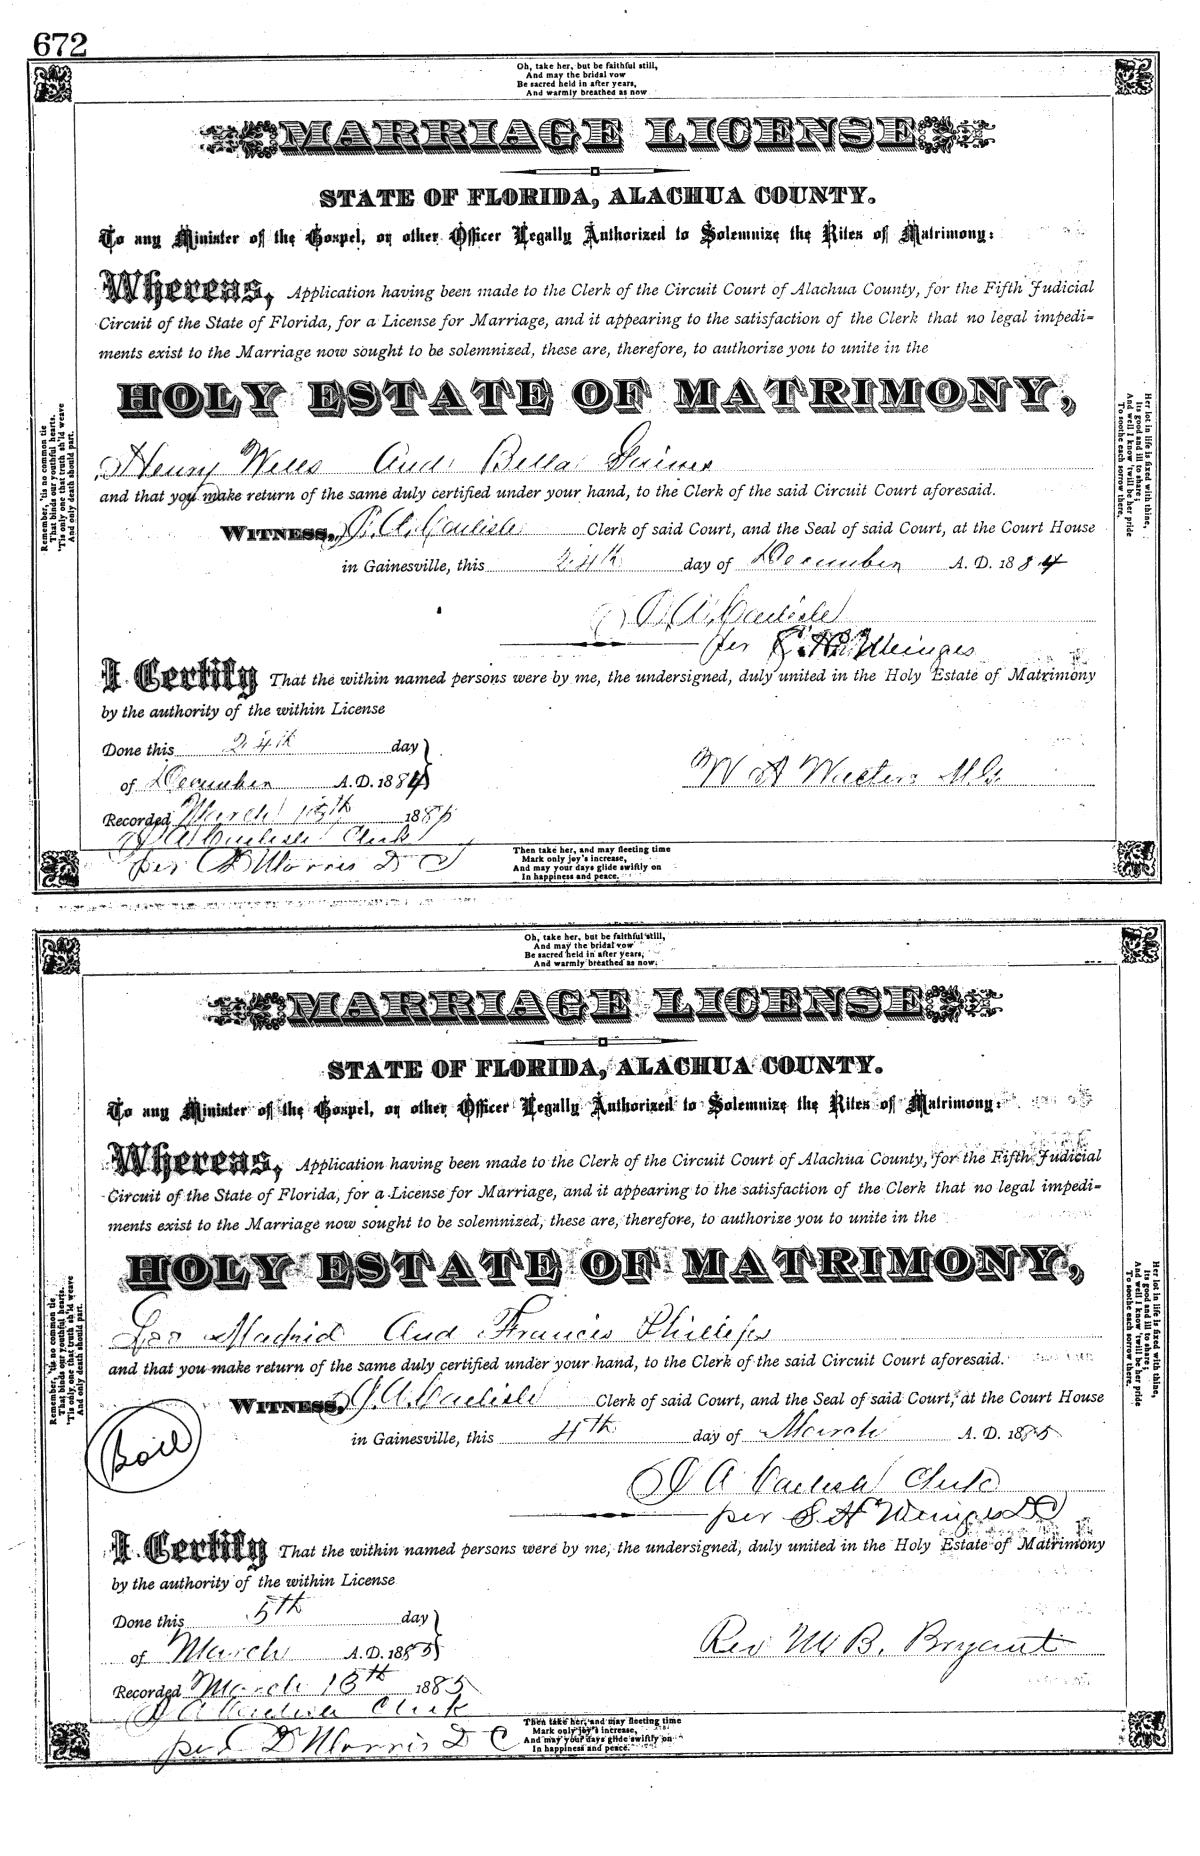 672
Oh, take her, but be faithful still,
And may the bridal vow
Be sacred held in after years,
And warmly breathed as now
MARRIAGE LICENSE
STATE OF FLORIDA, ALACHUA COUNTY.
To any Minister of the Gospel, or other Officer Legally Authorized to Solemnize the Rites of Matrimony:
Whereas, Application having been made to the Clerk of the Circuit Court of Alachua County, for the Fifth Judicial
Circuit of the State of Florida, for a License for Marriage, and it appearing to the satisfaction of the Clerk that no legal impedi=
ments exist to the Marriage now sought to be solemnized, these are, therefore, to authorize you to unite in the
HOLY ESTATE OF MATRIMONY,
Remember, 'tis no common tie
That binds our youthful hearts.
'Tis only one that truth sh'ld weave
And only death should part.
Her lot in life is fixed with thine,
Its good and ill to share;
And well I know 'twill be her pride
To soothe each sorrow there.
Henry Wells And Bella
and that you make return of the same duly certified under your hand, to the Clerk of the said Circuit Court aforesaid.
WITNESS, J. A. Carlisle Clerk of said Court, and the Seal of said Court, at the Court House
in Gainesville, this 24th day of December A. D. 1884
J. A. Carlisle
per S. H. Wienges
I Certify That the within named persons were by me, the undersigned, duly united in the Holy Estate of Matrimony
by the authority of the within License
Done this 24th day
of December A. D. 1884
W A M.G.
Recorded March 1885
J A Carlisle Clerk
per C D Morris D C
Then take her, and may fleeting time
Mark only joy's increase,
And may your days glide swiftly on
In happiness and peace.
Oh, take her, but be faithful still,
And may the bridal vow
Be sacred held in after years,
And warmly breathed as now.
MARRIAGE LICENSE
STATE OF FLORIDA, ALACHUA COUNTY.
To any Minister of the Gospel, or other Officer Legally Authorized to Solemnize the Rites of Matrimony:
Whereas, Application having been made to the Clerk of the Circuit Court of Alachua County, for the Fifth Judicial
Circuit of the State of Florida, for a License for Marriage, and it appearing to the satisfaction of the Clerk that no legal impedi=
ments exist to the Marriage now sought to be solemnized, these are, therefore, to authorize you to unite in the
HOLY ESTATE OF MATRIMONY,
Remember, 'tis no common tie
That binds our youthful hearts.
'Tis only one that truth sh'ld weave
And only death should part.
Her lot in life is fixed with thine,
Its good and ill to share;
And well I know 'twill be her pride
To soothe each sorrow there.
Madrid And Francis Phillips
and that you make return of the same duly certified under your hand, to the Clerk of the said Circuit Court aforesaid.
WITNESS, J. A. Carlisle Clerk of said Court, and the Seal of said Court, at the Court House
in Gainesville, this 4th day of March A. D. 1885
J A Carlisle Clerk
per S H Wienges D C
I Certify That the within named persons were by me, the undersigned, duly united in the Holy Estate of Matrimony
by the authority of the within License
Done this 5th day
of March A. D. 1885
Rev M B. Bryant
Recorded March 13th 1885
J A Carlisle Clerk
per C D Morris D C
Then take her, and may fleeting time
Mark only joy's increase,
And may your days glide swiftly on
In happiness and peace.